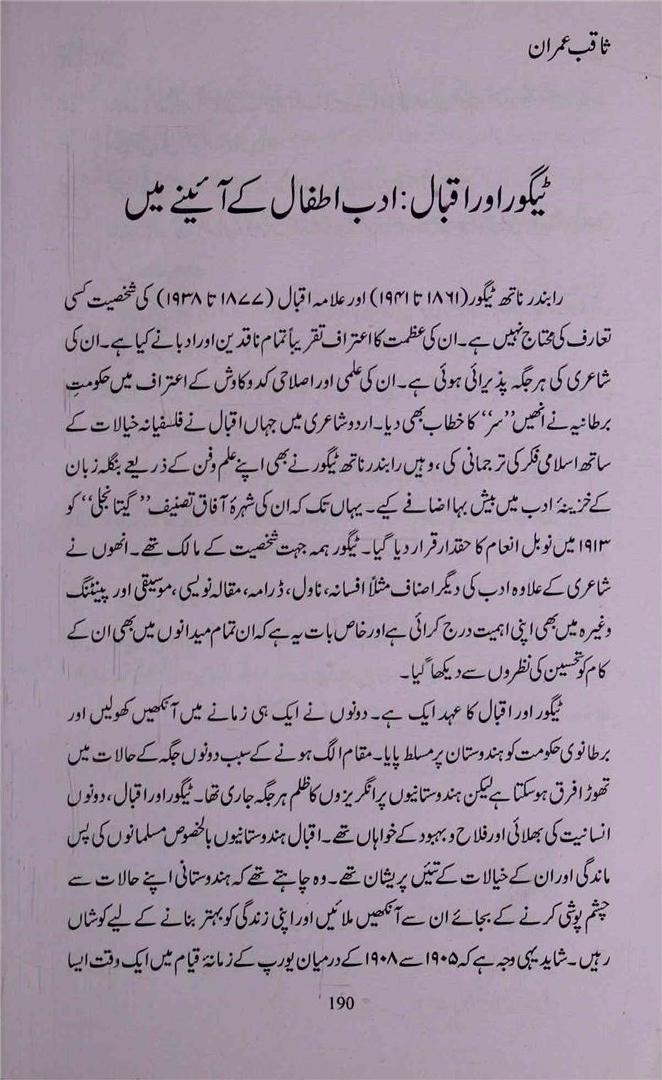 ثاقب عمران
ٹیگور اور اقبال: ادب اطفال کے آئینے میں
رابندر ناتھ ٹیگور (۱۸۶۱ تا ۱۹۴۱) اور علامہ اقبال (۱۸۷۷ تا ۱۹۳۸) کی شخصیت کسی
تعارف کی محتاج نہیں ہے۔ ان کی عظمت کا اعتراف تقریباً تمام ناقدین اور ادبا نے کیا ہے۔ ان کی
شاعری کی ہر جگہ پذیرائی ہوئی ہے۔ ان کی علمی اور اصلاحی کدو کاوش کے اعتراف میں حکومتِ
برطانیہ نے انھیں ’’سر‘‘ کا خطاب بھی دیا۔ اردو شاعری میں جہاں اقبال نے فلسفیانہ خیالات کے
ساتھ اسلامی فکر کی ترجمانی کی، وہیں رابندر ناتھ ٹیگور نے بھی اپنے علم و فن کے ذریعے بنگلہ زبان
کے خزینۂ ادب میں بیش بہا اضافے کیے۔ یہاں تک کہ ان کی شہرۂ آفاق تصنیف ’’گیتانجلی‘‘ کو
۱۹۱۳ میں نوبل انعام کا حقدار قرار دیا گیا۔ ٹیگور ہمہ جہت شخصیت کے مالک تھے۔ انھوں نے
شاعری کے علاوہ ادب کی دیگر اصناف مثلاً افسانہ، ناول، ڈرامہ، مقالہ نویسی، موسیقی اور پینٹنگ
وغیرہ میں بھی اپنی اہمیت درج کرائی ہے اور خاص بات یہ ہے کہ ان تمام میدانوں میں بھی ان کے
کام کو تحسین کی نظروں سے دیکھا گیا۔
ٹیگور اور اقبال کا عہد ایک ہے۔ دونوں نے ایک ہی زمانے میں آنکھیں کھولیں اور
برطانوی حکومت کو ہندوستان پر مسلط پایا۔ مقام الگ ہونے کے سبب دونوں جگہ کے حالات میں
تھوڑا فرق ہوسکتا ہے لیکن ہندوستانیوں پر انگریزوں کا ظلم ہر جگہ جاری تھا۔ ٹیگور اور اقبال، دونوں
انسانیت کی بھلائی اور فلاح و بہبود کے خواہاں تھے۔ اقبال ہندوستانیوں بالخصوص مسلمانوں کی پس
ماندگی اور ان کے خیالات کے تئیں پریشان تھے۔ وہ چاہتے تھے کہ ہندوستانی اپنے حالات سے
چشم پوشی کرنے کے بجائے ان سے آنکھیں ملائیں اور اپنی زندگی کو بہتر بنانے کے لیے کوشاں
رہیں۔ شاید یہی وجہ ہے کہ ۱۹۰۵ سے ۱۹۰۸ کے درمیان یورپ کے زمانۂ قیام میں ایک وقت ایسا
190